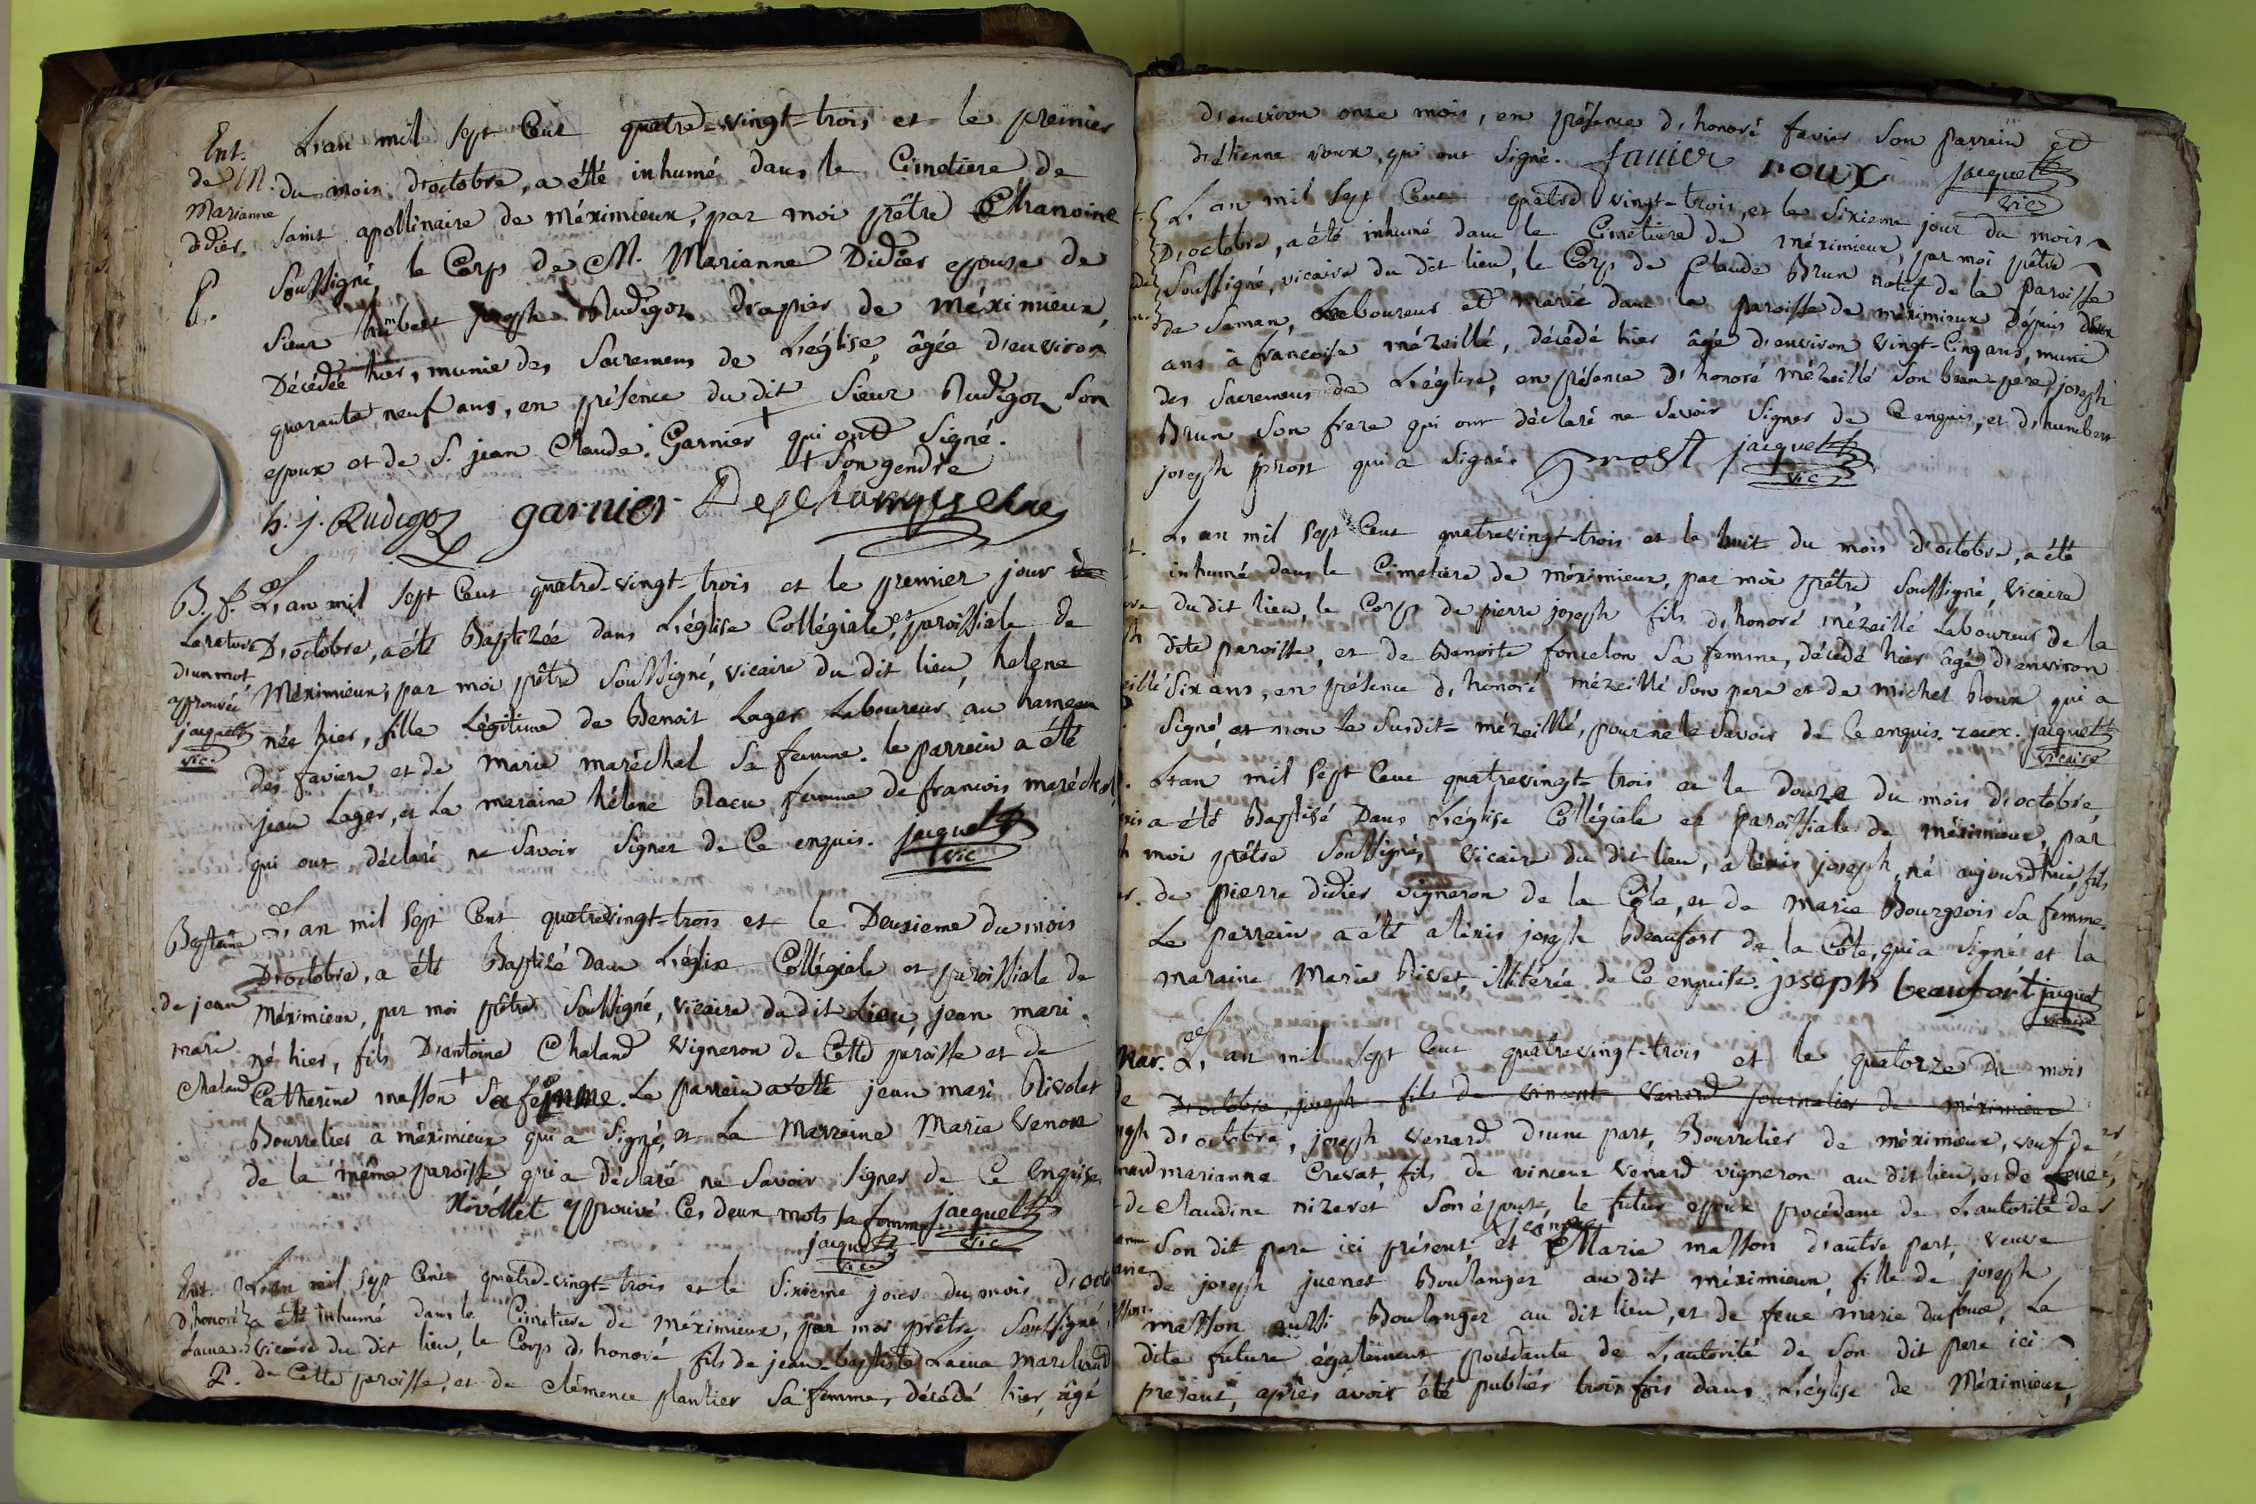 Ent.
de M.
Marianne
didier.
E.
L'an mil sept Cent quatre-vingt-trois et le premier
du mois d'octobre, a été inhumé dans le Cimetiere de
saint apollinaire de méximieux, par moi prêtre Chanoine
Soussigné, le Corps de M. Marianne Didier epouse de
Sieur humbert joseph Rudigoz drapier de méximieux,
Décédée hier, munie des Sacremens de L'église, âgée d'environ
quarante neuf ans, en présence du dit Sieur Rudigoz Son
epoux et de S. jean Claude Garnier + qui ont Signé.
+ Son gendre
h. j. Rudigoz garnier Deschamps chne
B. f.
La rature
d'un mot
approuvée
jacquet
vic.
L'an mil sept Cent quatre-vingt-trois et le premier jour de
D'octobre, a été Baptizée dans L'église Collégiale, et paroissiale de
Méximieux, par moi prêtre Soussigné, vicaire du dit lieu, helene
née hier, fille Légitime de Benoit Lager Laboureur au hameau
des favier, et de marie maréchal Sa femme. le parrein a été
jean Lager, et La maraine hélene Placu femme de francois maréchal,
qui ont déclaré ne Savoir Signer de Ce enquis. jacquet
vic
Baptême
de jean
mari
Chaland
L'an mil Sept Cent quatrevingt-trois et le Deuxieme du mois
D'octobre, a été Baptisé Dans L'église Collégiale et paroissiale de
Méximieux, par moi prêtre Soussigné, vicaire du dit Lieu, jean mari.
né hier, fils D'antoine Chaland Vigneron de Cette paroisse et de
Catherine masson + Sa femme. Le parrein a été jean mari Rivolet
Bourrelier a méximieux qui a Signé, et La Marreine Marie Venon
de la même paroisse qui a Déclaré ne Savoir Signer de Ce Enquise
Rivollet approuvé Ces deux mots sa femme jacquet
jacquet vic
vic
Ent.
d'honoré
Lacua
P.
L'an mil sept Cent quatre-vingt-trois et le Sixieme jour du mois d'octo
a été inhumé dans le Cimetiere de méximieux, par moi prêtre Soussigné,
vicaire du dit lieu, le Corps d'honoré fils de jean-baptiste Lacua Marchand
de Cette paroisse, et de Clémence plantier Sa femme, décédé hier, âgé
d'environ onze mois, en présence d'honoré favier Son parrein et
d'étienne roux, qui ont Signé. favier roux jacquet
vic
L'an mil Sept Cent quatre vingt-trois, et le Sixieme jour du mois
D'octobre, a été inhumé dans le Cimetiere de méximieux, par moi prêtre
Soussigné, vicaire du dit lieu, le Corps de Claude Brun natif de la paroisse
de Seman, Laboureur et marié dans la paroisse de méximieux depuis deux
ans à francoise mézeillé, décédé hier âgé d'environ vingt-Cinq ans, muni
des Sacremens de L'église, en présence d'honoré mézeillé Son beau-pere, joseph
Brun Son frere qui ont déclaré ne Savoir Signer de Ce enquis, et d'humbert
joseph prost qui a Signé. prost jacquet
vic
L'an mil Sept Cent quatrevingt-trois et le huit du mois d'octobre, a été
inhumé dans le Cimetiere de méximieux, par moi prêtre Soussigné, vicaire
du dit lieu, le Corps de pierre joseph fils d'honoré mézeillé Laboureur de la
dite paroisse, et de Benoite foncelon Sa femme, décédé hier âgé d'environ
Six ans, en présence d'honoré mézeillé Son pere et de michel Roux qui a
Signé, et non le Susdit mézeillé, pour ne le Savoir de Ce enquis. roux. jacquet
vicaire
L'an mil Sept Cent quatrevingt-trois et le Douze du mois D'octobre,
a été Baptisé Dans L'église Collégiale et paroissiale de méximieux, par
moi prêtre Soussigné, vicaire du dit lieu, alexis joseph, né aujourd'hui, fils
de pierre didier vigneron de la Côte, et de marie Bourgeois Sa femme.
Le parrein a été alexis joseph Beaufort de la Côte, qui a Signé et la
maraine Marie Rivet, illitérée de Ce enquise. joseph beaufort jacquet
vicaire
Mar.
L'an mil Sept Cent quatrevingt-trois et le quatorze Du mois
D'octobre, joseph fils de vincent Venard journalier de méximieux
d'octobre, joseph Venard d'une part, Bourrelier de méximieux, veuf de
marianne Crevat, fils de vincent Venard vigneron au dit lieu, et de feue
Claudine nizeret Son épouse, le futur epoux procédant de L'autorité de
Son dit pere ici présent, et jeanne Marie masson d'autre part, veuve
de joseph juenet Boulanger au dit méximieux, fille de joseph
masson aussi Boulanger au dit lieu, et de feue marie dufour, La
dite future également procédante de L'autorité de Son dit pere ici
présent, après avoir été publiés trois fois dans L'église de Méximieux,